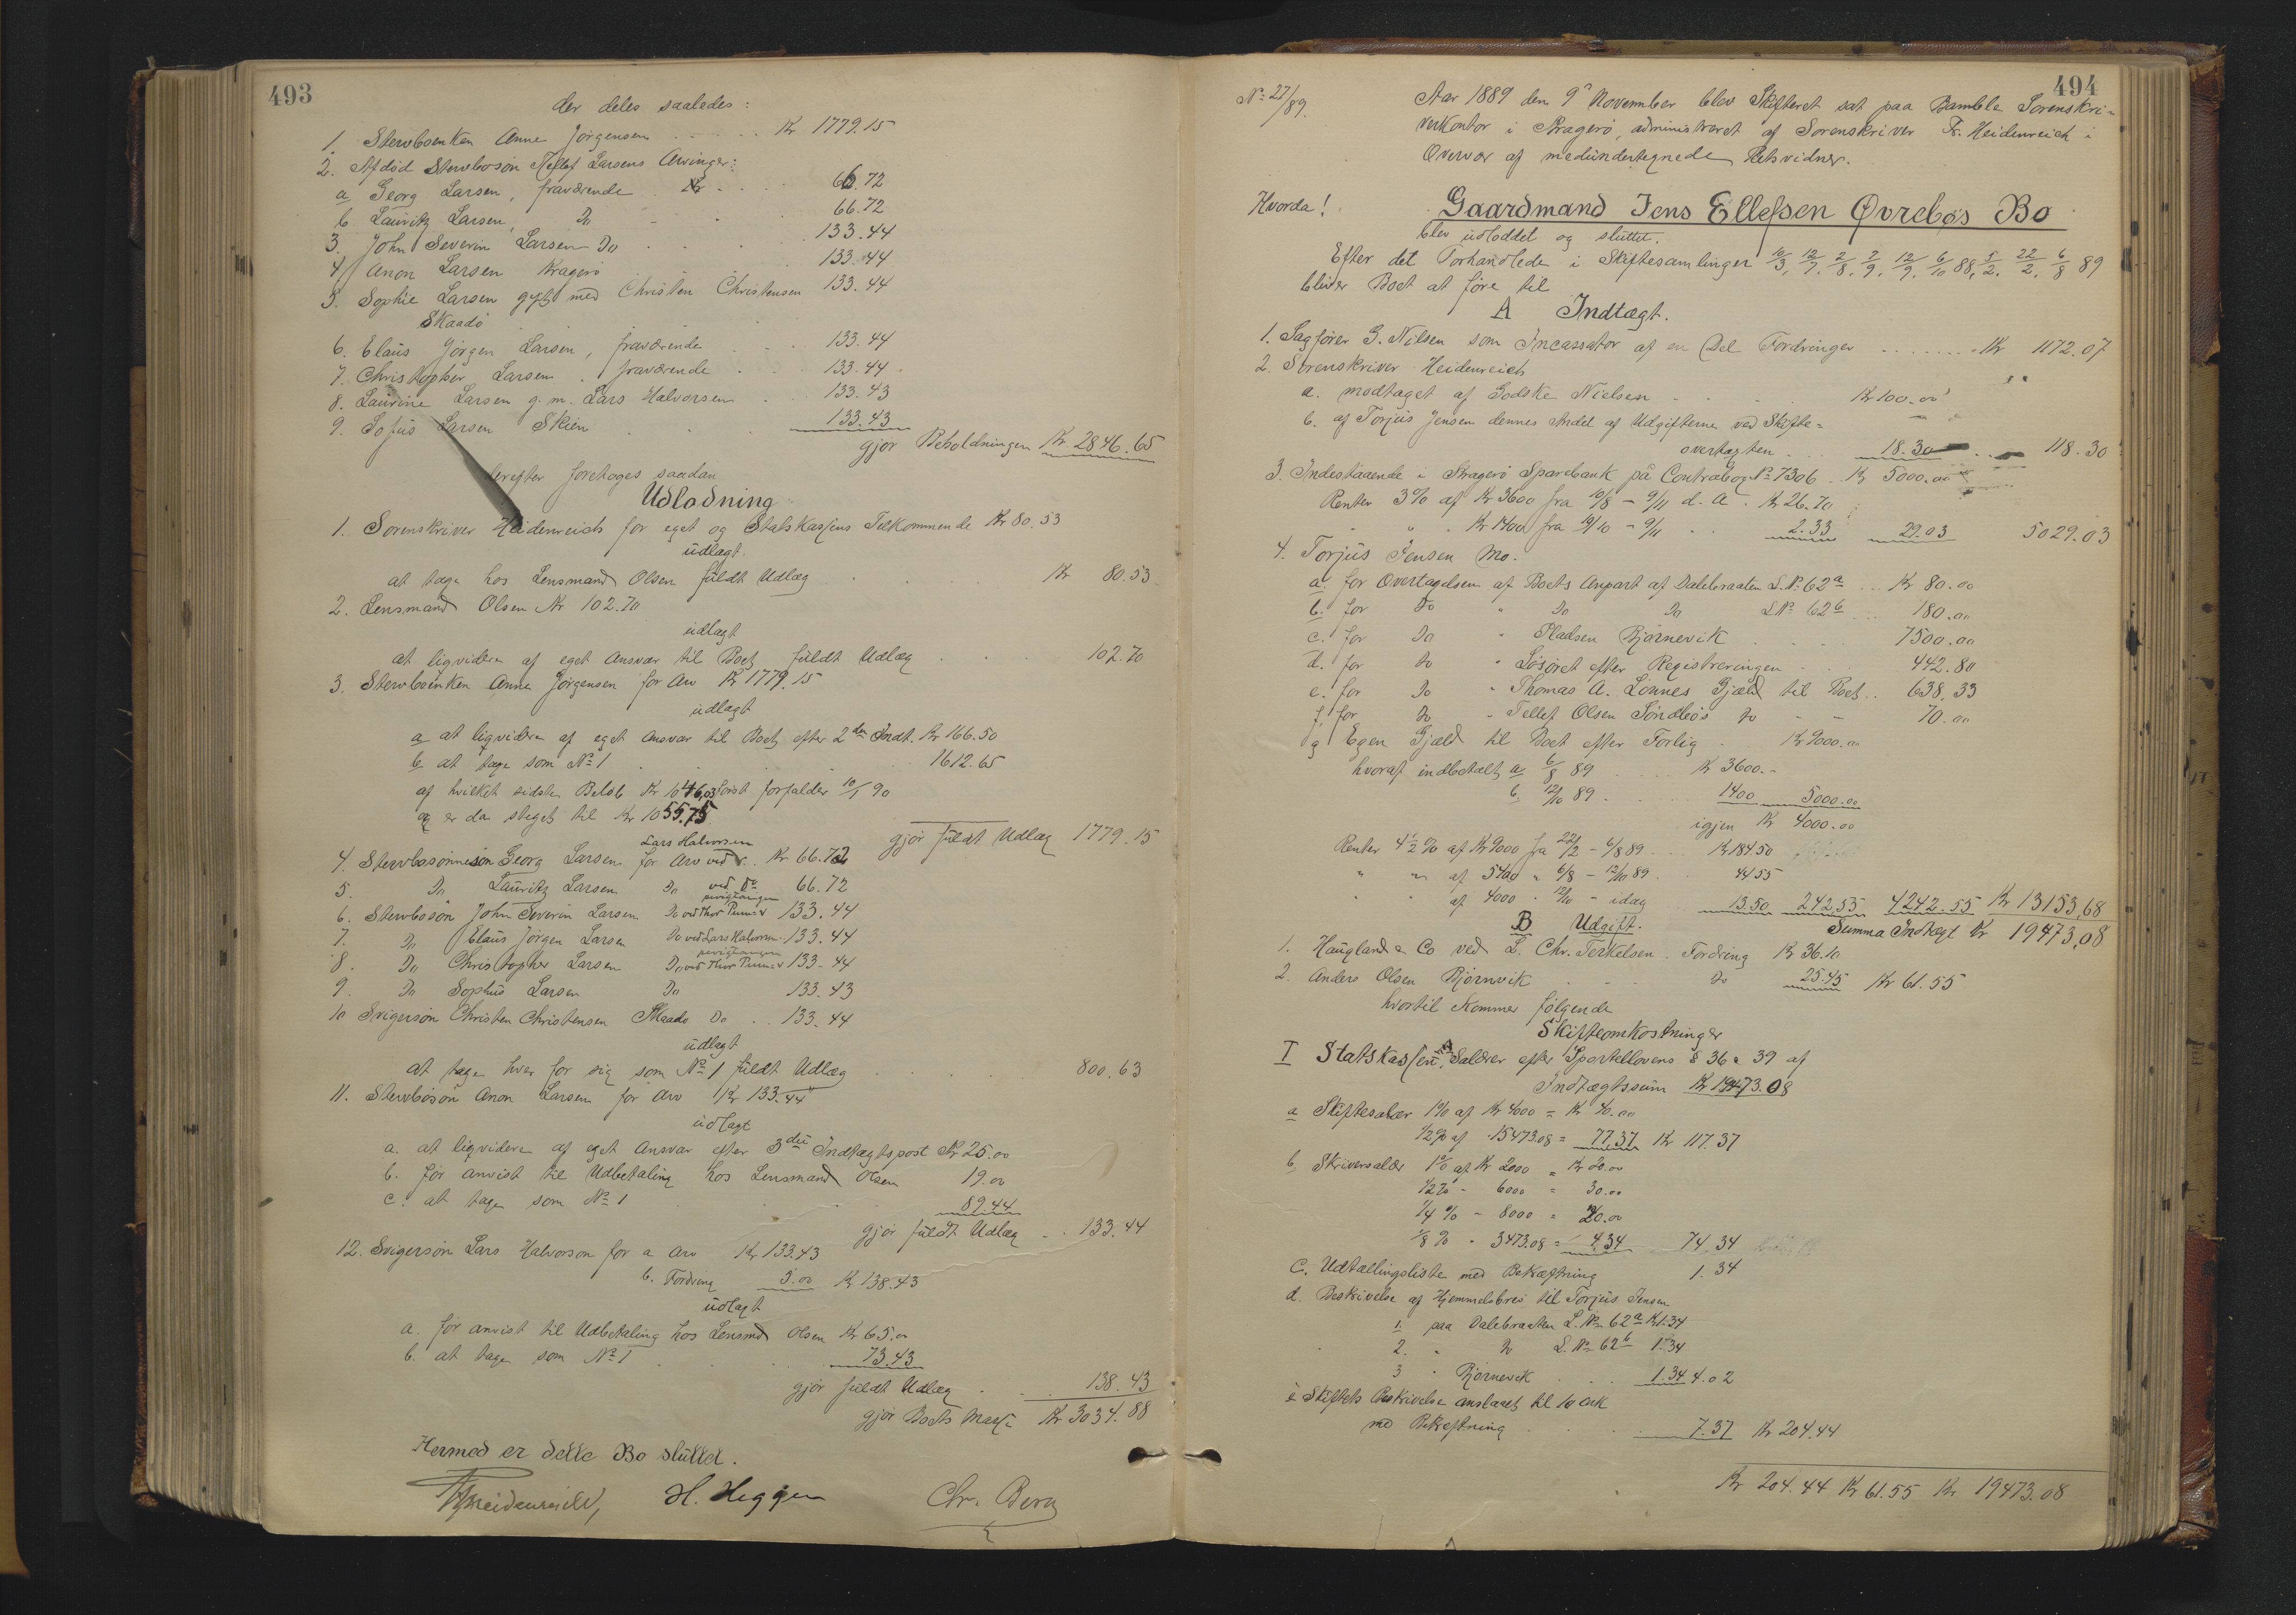 493
der deles saaledes:
1. Stervboenken Anne Jörgensen . . . . . Kr 1779.15
2. Afdöd Stervbosön Tellef Larsens Arvinger:
a Georg Larsen, fraværende Kr . . . 66.72
b Lauritz Larsen, Do - . . 66.72
3. John Severin Larsen Do . . . . 133.44
4. Anon Larsen Kragerö 133.44
5. Sophie Larsen gift med Christen Christensen 133.44
Skaadö
6. Elaus Jörgen Larsen, fraværende . . 133.44
7. Christopher Larsen, fraværende . . 133.44
8. Laurine Larsen g. m. Lars Halvorsen . 133.43
9. Sofus Larsen Skien . . . 133.43
gjör Beholdningen Kr 2846.65
derefter foretoges saadan
Udlodning
1. Sorenskriver Heidenreich for eget og Statskassens Tilkommende Kr 80.53
udlagt
at tage hos Lensmand Olsen fuldt Udlæg . . . . . Kr 80.53
2. Lensmand Olsen Kr 102.70
udlagt
at liqvidere af eget Ansvar til Boet fuldt Udlæg . . . 102.70
3. Stervboenken Anne Jörgensen for Arv Kr 1779.15
udlagt
a at liqvidere af eget Ansvar til Boet efter 2den Indt. Kr 166.50
b at tage som No 1 . . . . 1612.65
af hvilket sidste Belöb Kr 1046,03 först forfalder 10/1 90
og er da steget til Kr 1055,75
gjör fuldt Udlæg 1779.15
Lars Halvorsen
4. Stervbosönnesön Georg Larsen for Arv ved Kr 66.72
5. Do Lauritz Larsen Do ved Do 66.72
6. Stervbosön John Severin Larsen Do ved Thor 133.44
7. Do Elaus Jörgen Larsen Do ved Lars Halvorsen 133.44
8. Do Christopher Larsen Do ved Thor 133.44
9. Do Sophus Larsen Do 133.43
10 Svigersön Christen Christensen Skaadö Do . . 133.44
udlagt
at tage hver for sig som No 1 fuldt Udlæg . . . . 800.63
11. Stervbosön Anon Larsen for Arv Kr 133.44
udlagt
a. at liqvidere af eget Ansvar efter 3die Indtægtspost Kr 25.00
b. för anvist til Udbetaling hos Lensmand Olsen 19.00
c. at tage som No 1 . . . 89.44
gjör fuldt Udlæg . . 133.44
12. Svigersön Lars Halvorsen for a Arv Kr 133.43
b. Fordring 5.00 Kr 138.43
udlagt
a. för anvist til Udbetaling hos Lensmd Olsen Kr 65.00
b. at tage som No 1 . . . 73.43
gjör fuldt Udlæg . . . 138.43
gjör Boets Masse Kr 3034.88
Hermed er dette Bo sluttet.
Heidenreich, H. Heggen Chr. Berg
494
No 27/89.
Aar 1889 den 9de November blev Skifteret sat paa Bamble Sorenskri-
verkontor i Kragerö, administreret af Sorenskriver Fr. Heidenreich i
Overvær af medundertegnede Retsvidner.
Hvorda!
Gaardmand Jens Ellefsen Øvrebøs Bo
blev udloddet og sluttet.
Efter det Forhandlede i Skiftesamlinger 10/3, 12/7, 2/8, 7/9, 12/9, 6/10 88, 5/2, 22/2, 6/8 89
bliver Boet at före til
A Indtægt.
1. Sagförer G. Nilsen som Incassator af en Del Fordringer . . . . . . . Kr 1172.07
2. Sorenskriver Heidenreich
a. modtaget af Godske Nielsen - . . . Kr 100.00
b. af Torjus Jensen dennes Andel af Udgifterne ved Skifte-
overtagten . . . 18.30 . . 118.30
3. Indestaaende i Kragerö Sparebank på Contrabog No 7306 . Kr 5000.00
Renter 3% af Kr 3600 fra 10/8 - 9/11 d. A. Kr 26.70
" " . Kr 1400 fra 19/10 - 9/11 . . 2.33 29.03 5029.03
4. Torjus Jensen Mo.
a. for Overtagelsen af Boets Anpart af Dalebraaten L.No 62a . . Kr 80.00
b. for Do " Do Do LNo 62b . . . 180.00
c. for Do " Pladsen Björnevik . . . . 7500.00
d. for Do " Lösöret efter Registreringen . . 442.80
e. for Do " Thomas A. Lönnes Gjæld til Boet . . 638.33
f. for Do " Tellef Olsen Söndbös Do - - 70.00
g Egen Gjæld til Boet efter Forlig . Kr 9000.00
hvoraf indbetalt a 6/8 89 . . . . Kr 3600.-
b 12/10 89 . . . 1400 5000.00
igjen Kr 4000.00
Renter 4 1/2 % af Kr 9000 fra 22/2 - 6/8 89 . . Kr 184.50
" " af 5400 " 6/8 - 12/10 89 . 44.55
" " af 4000 " 12/10 - idag . . 13.50 242.55 4242.55 Kr 13153,68
Summa Indtægt Kr 19473,08
B Udgift.
1. Haugland & Co ved L. Chr. Terkelsen . Fordring Kr 36.10
2. Anders Olsen Björnvik . . . Do 25.45 Kr 61.55
hvortil Kommer fölgende
Skifteomkostninger
I Statskassen. A Salærer efter Sportellovens § 36 & 39 af
Indtægtssum Kr 19473.08
a Skiftesalær 1% af Kr 4000 = Kr 40.00
1/2% af " 15473.08 = 77,37 Kr 117.37
b. Skriversalær 1% af Kr 2000 = Kr 20.00
1/2% - 6000 = 30.00
1/4 % - 8000 = 20.00
1/8 % " 3473.08 = 4.34 74.34
c. Udtællingsliste med Bekræftning 1.34
d. Beskrivelse af Hjemmelsbrev til Torjus Jensen
1. paa Dalebraaten L.No 62a Kr 1.34
2. " Do L.No 62b 1.34
3 " Björnevik . . . 1.34 4.02
e Skiftets Beskrivelse anslaaet til 10 Ark
med Bekræftning . . . . . 7.37 Kr 204.44
Kr 204.44 Kr 61.55 Kr 19473.08